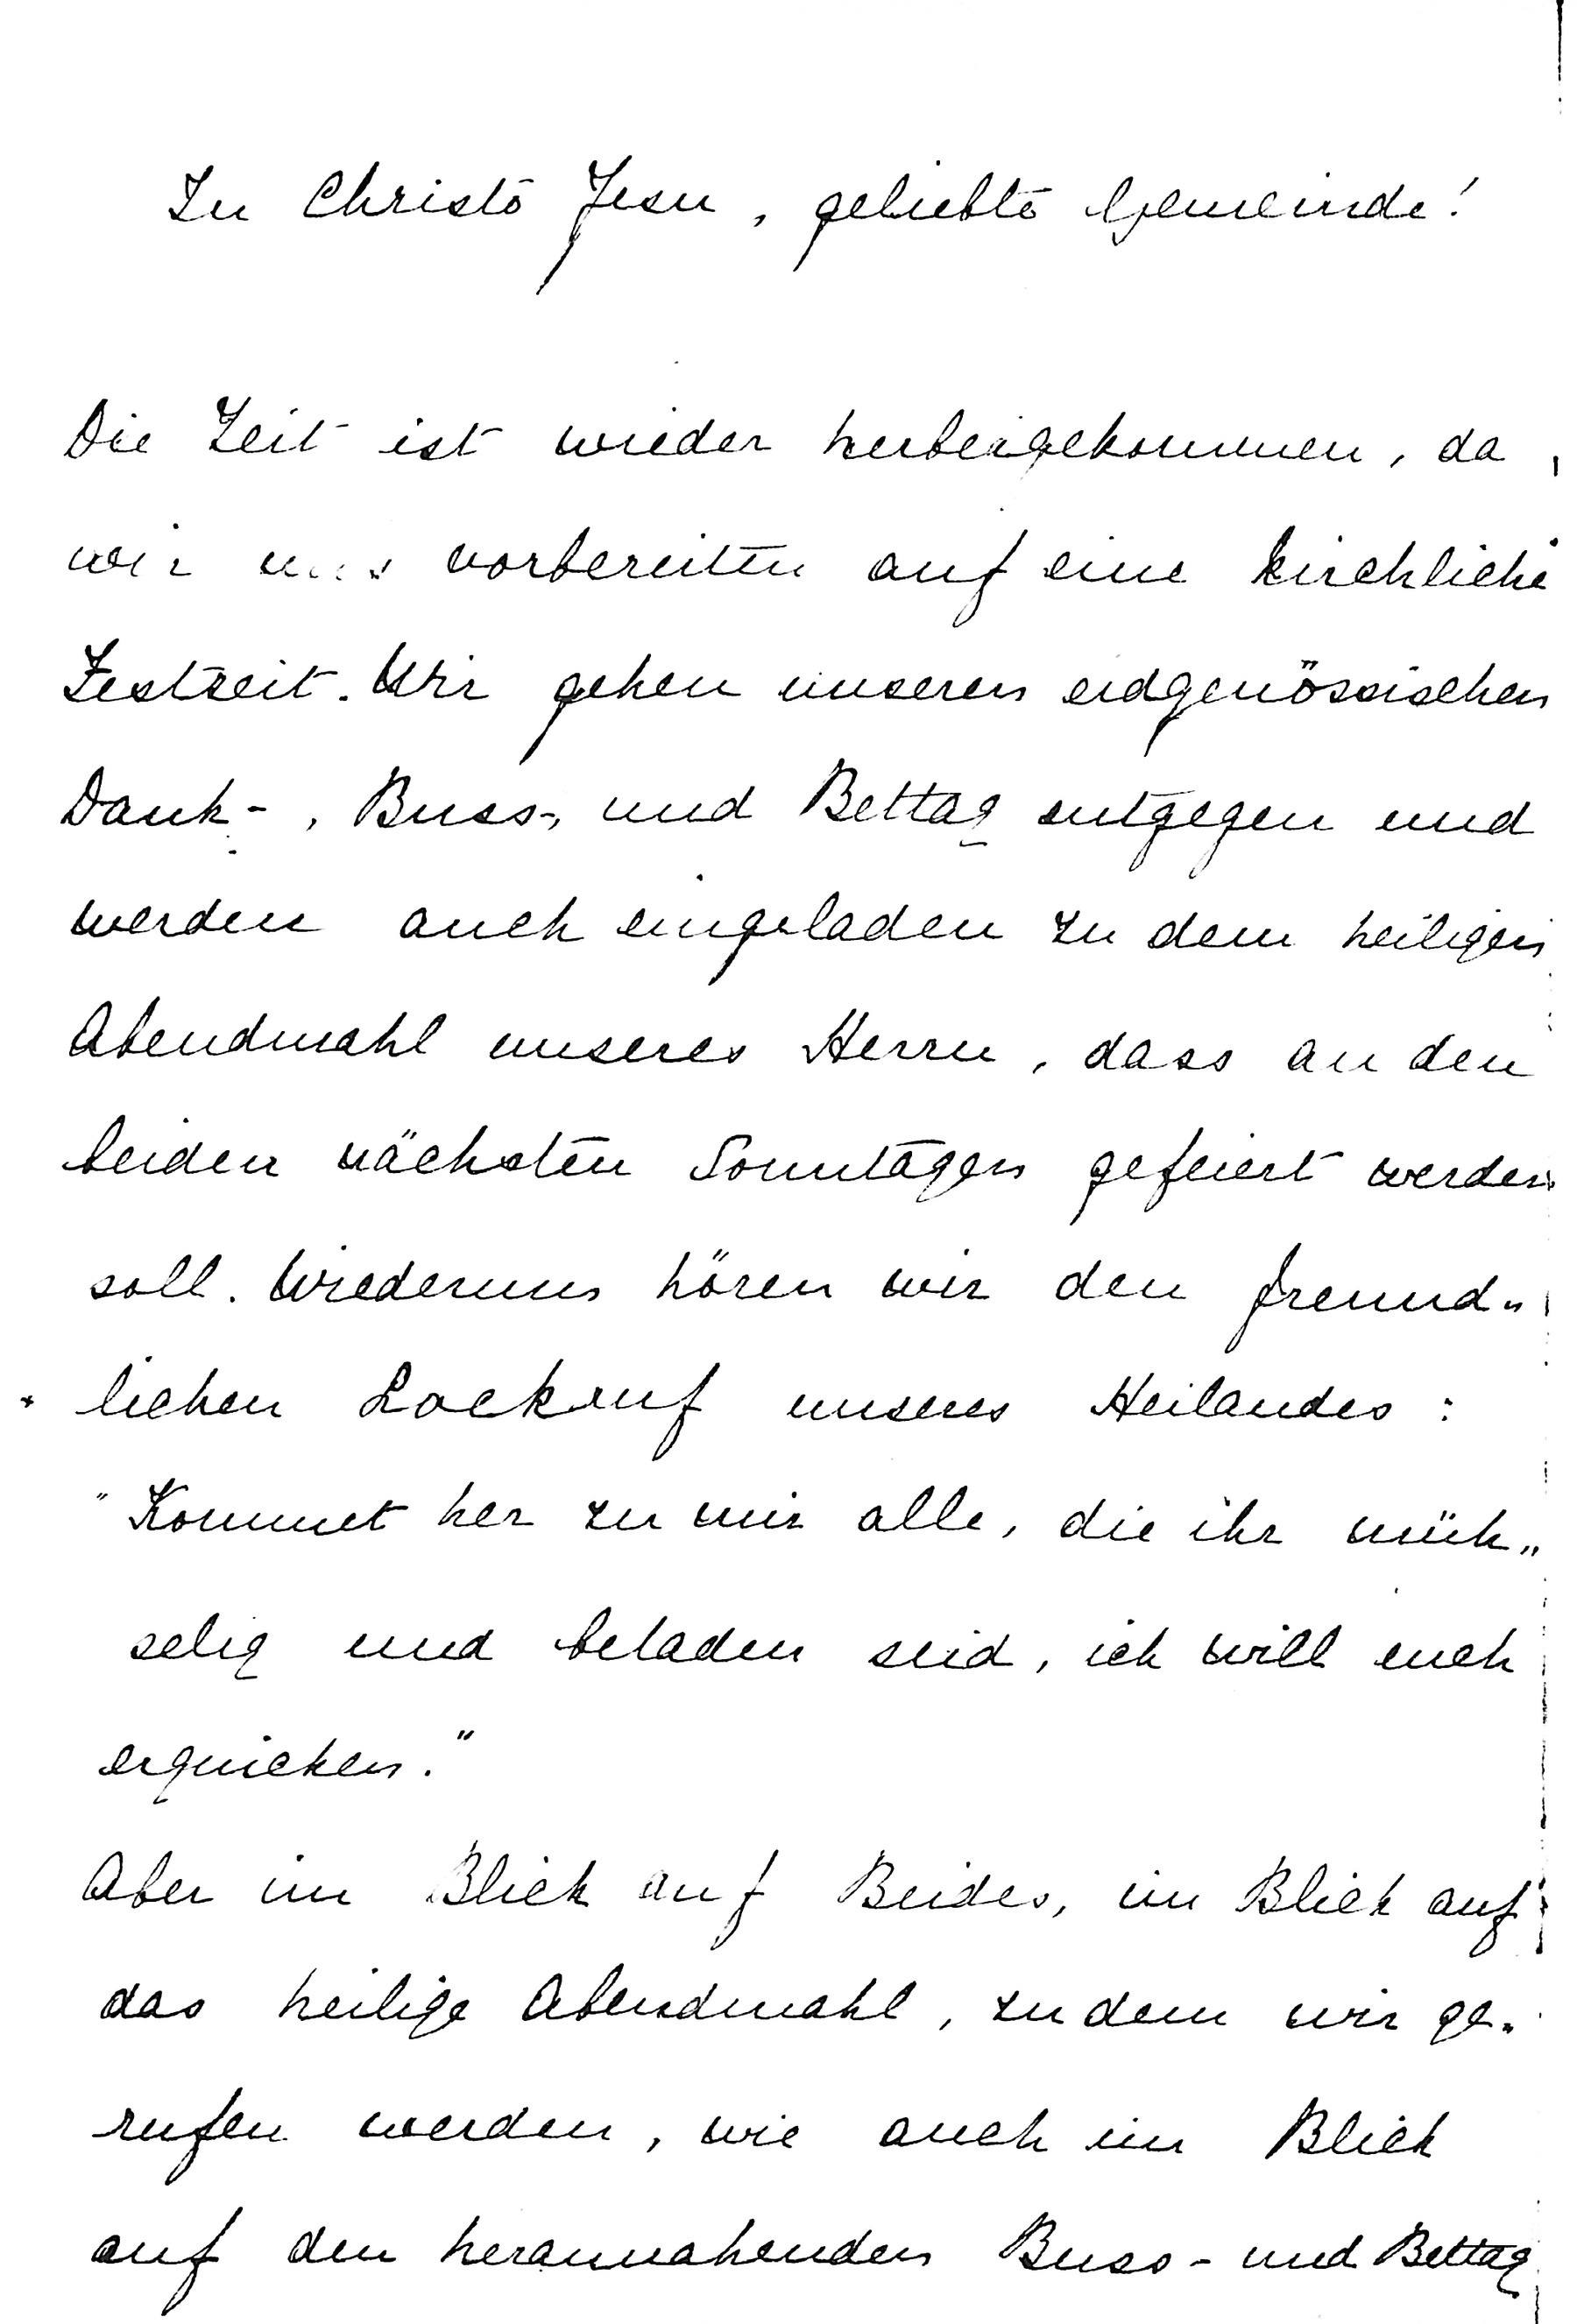 In Christo Jesu, geliebte Gemeinde!
Die Zeit ist wieder herbeigekommen, da
wir uns vorbereiten auf eine kirchliche
Festzeit. Wir gehen unseren eidgenössischen
Dank-, Buss-, und Bettag entgegen und
werden auch eingeladen zu dem heiligen
Abendmahl unseres Herrn, dass an den
beiden nächsten Sonntagen gefeiert werden
soll. Wiederum hören wir den freund„
lichen Lockruf unseres Heilandes:
"Kommet her zu mir alle, die ihr müh„
selig und beladen seid, ich will euch
erquicken."
Aber im Blick auf Beides, im Blick auf
das heilige Abendmahl, zu dem wir ge„
rufen werden, wie auch im Blick
auf den herannahenden Buss- und Bettag